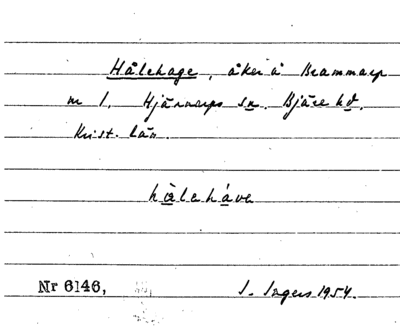 Hålehage, åker å Brammarp
nr 1, Hjärnarps sn. Bjäre hd.
Krist. län.
hålehàve
Nr 6146,
I. Ingers 1954.